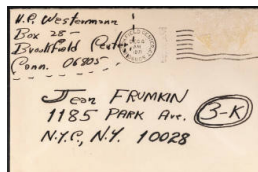 Westermann
Box 28
Brookfield
Conn. 06805
Jean FRUMKIN
1185 PARK Ave.
3-K
N.Y.C., N.Y. 10028